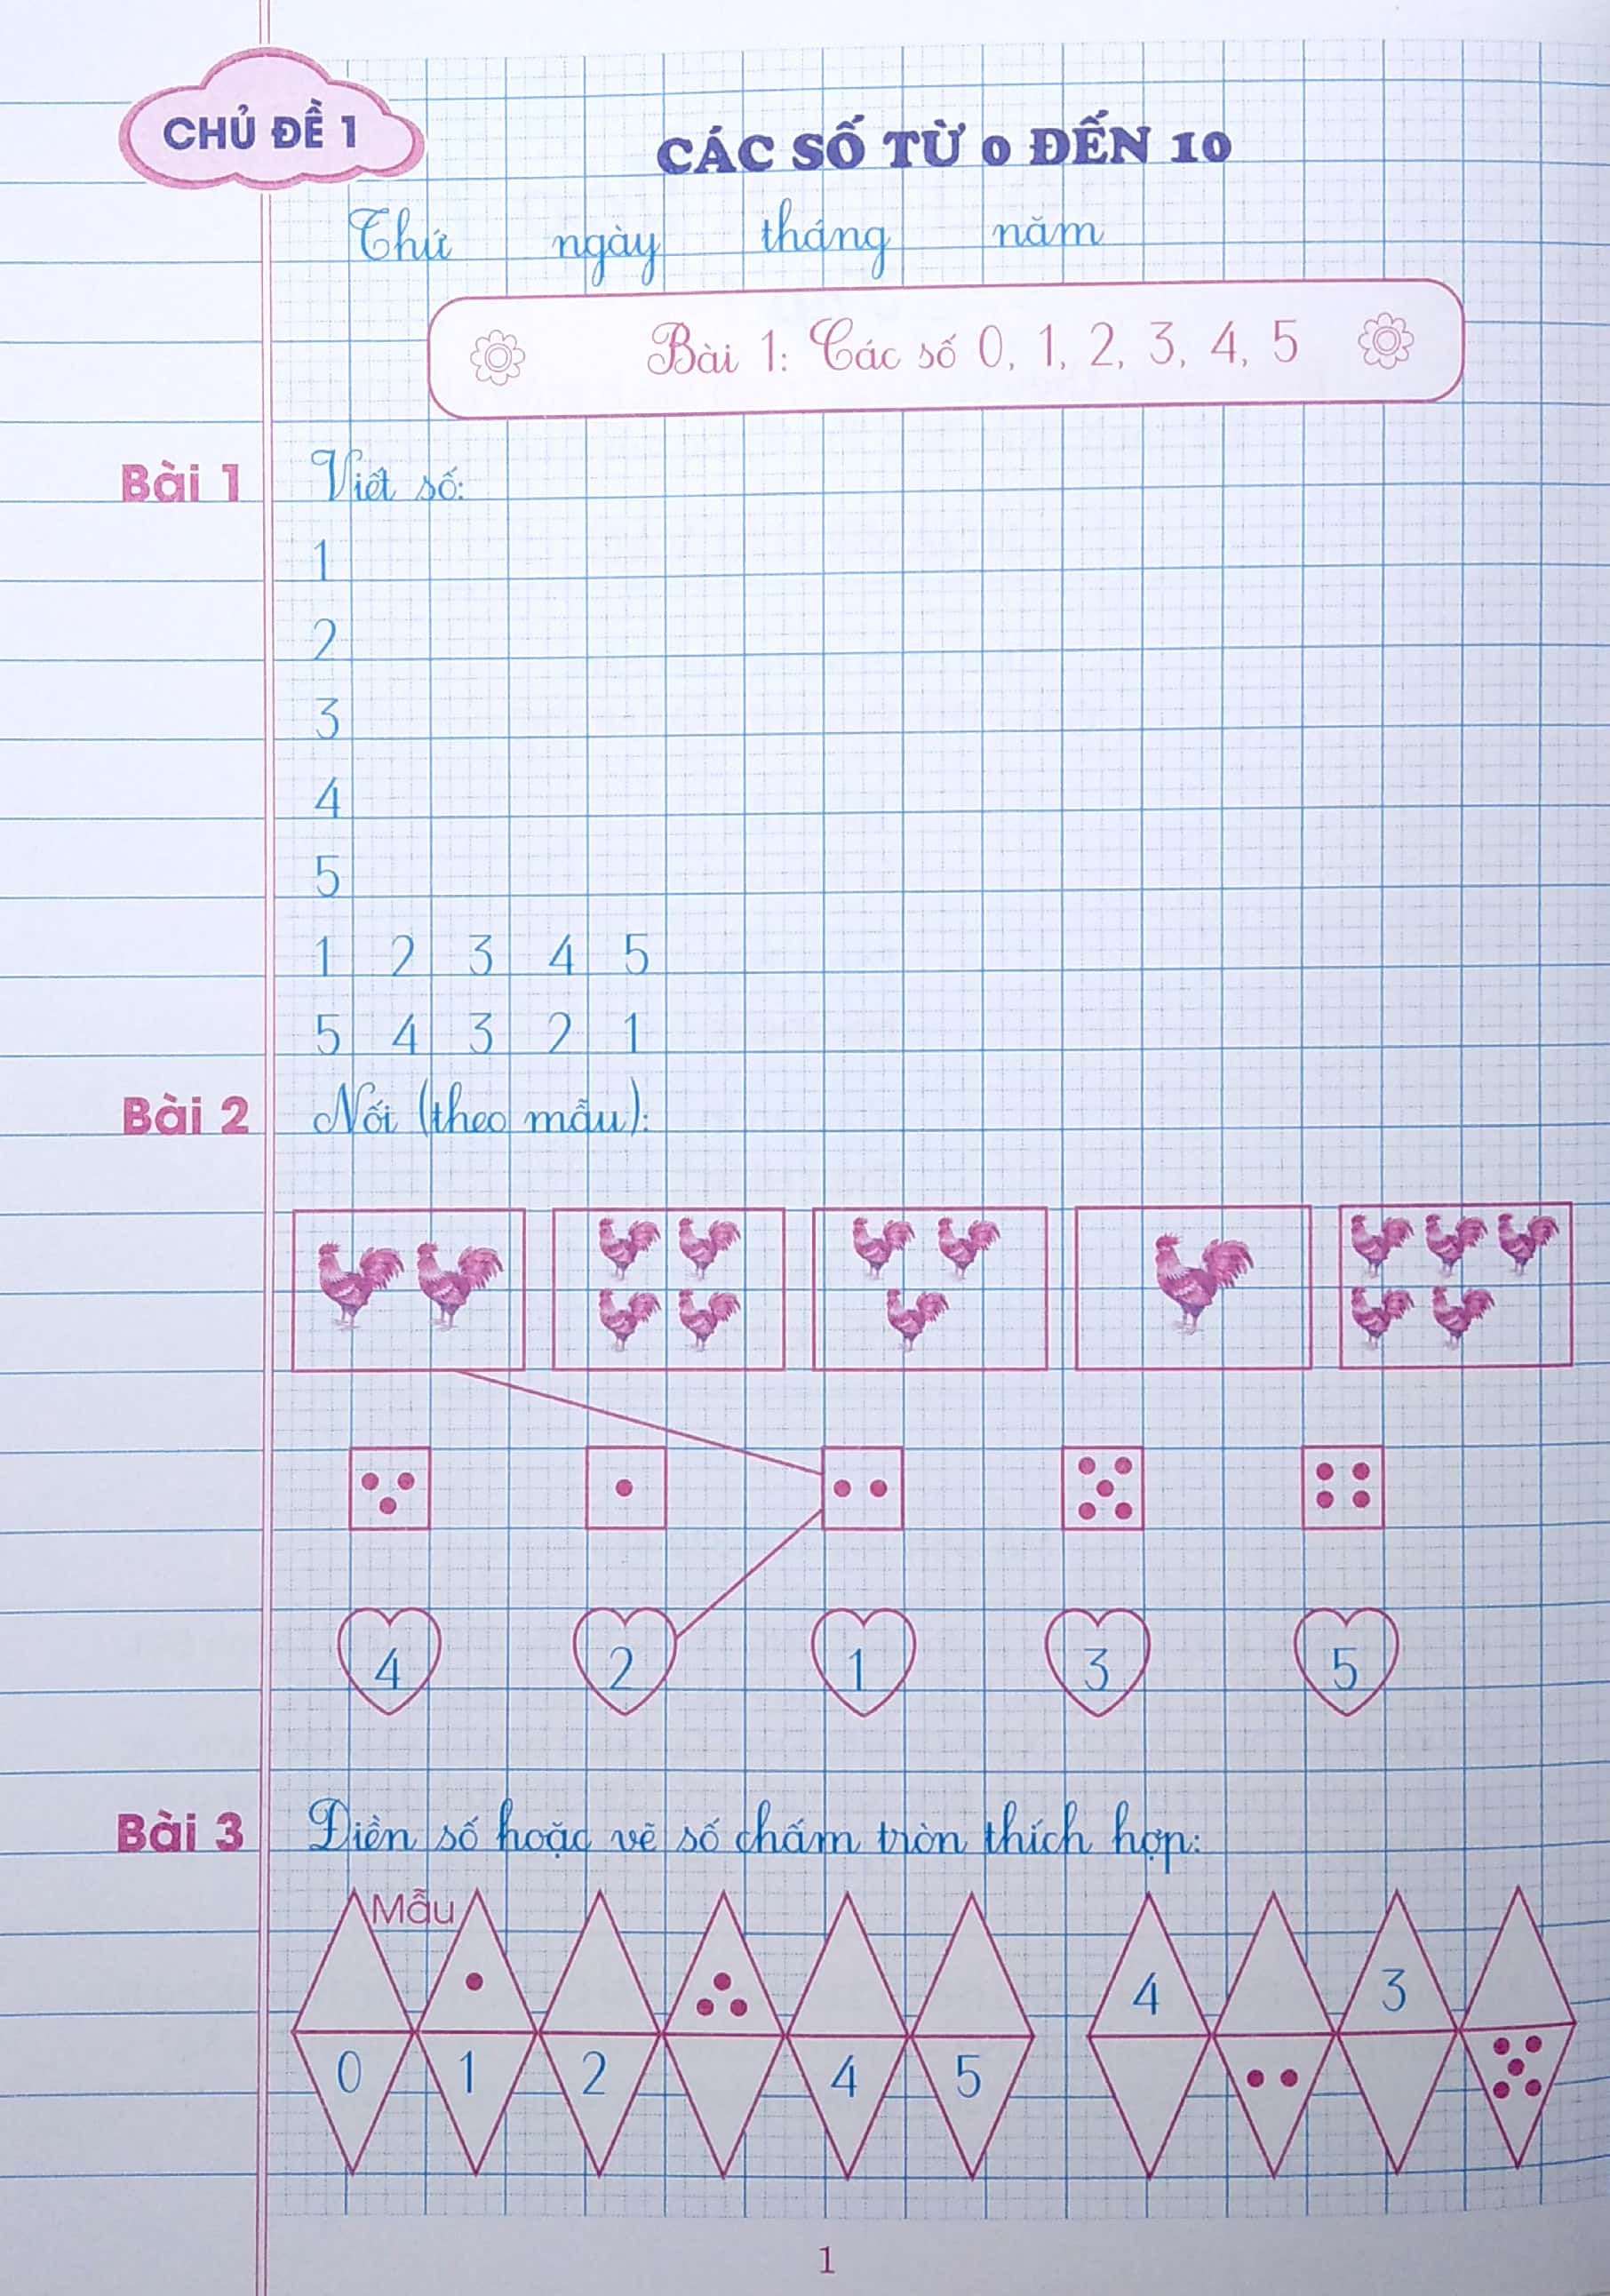 CHỦ ĐỀ 1
CÁC SỐ TỪ 0 ĐẾN 10
Thứ ngày tháng năm
Bài 1: Các số 0, 1, 2, 3, 4, 5
Bài 1 Viết số:
1
2
3
4
5
1 2 3 4 5
5 4 3 2 1
Bài 2 Nối (theo mẫu):
4 2 1 3 5
Bài 3 Điền số hoặc vẽ số chấm tròn thích hợp:
Mẫu
4 3
0 1 2 4 5
1